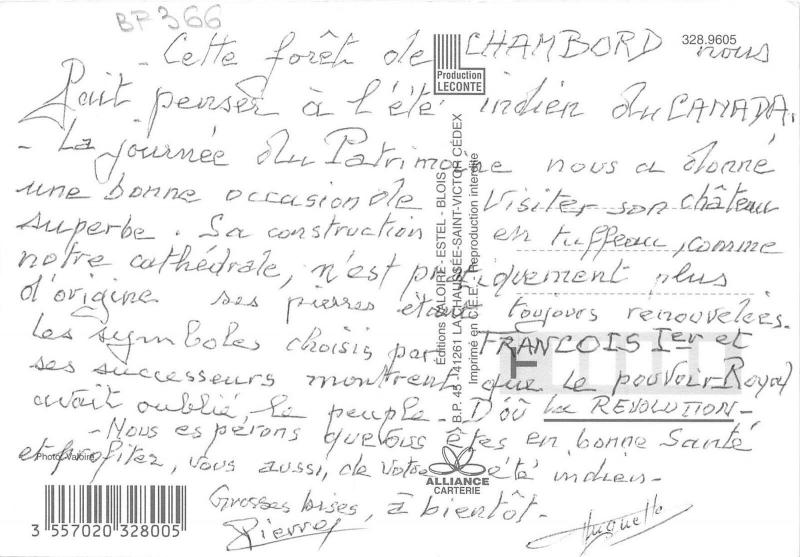 BP 366
328.9605
- Cette forêt de CHAMBORD nous
fait penser à l'été indien du CANADA.
- La journée du Patrimoine nous a donné
une bonne occasion de visiter son château
superbe. Sa construction en tuffeau, comme
notre cathédrale, n'est pratiquement plus
d'origine ses pierres étant toujours renouvelées.
Les symboles choisis par FRANCOIS Ier et
ses successeurs montrent que le pouvoir Royal
avait oublié, le peuple. D'où la REVOLUTION-
- Nous espérons que vous êtes en bonne santé
et profitez, vous aussi, de votre été indien -
Grosses bises, à bientôt.
Pierre
Huguette
Production
LECONTE
Éditions VALOIRE-ESTEL - BLOIS
B.P. 45 - 41261 LA CHAUSSÉE-SAINT-VICTOR CÉDEX
Imprimé en C.E.E. - Reproduction interdite
Photo: Valoire
ALLIANCE
CARTERIE
3 557020 328005